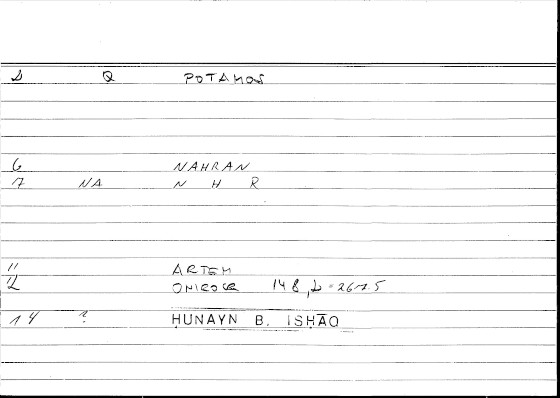 1 Q POTAMOS
6 NAHRAN
7 NA N H R
11 ARTEM
12 ONIROCR 148,
14 ? ḤUNAYN B. ISḤĀQ